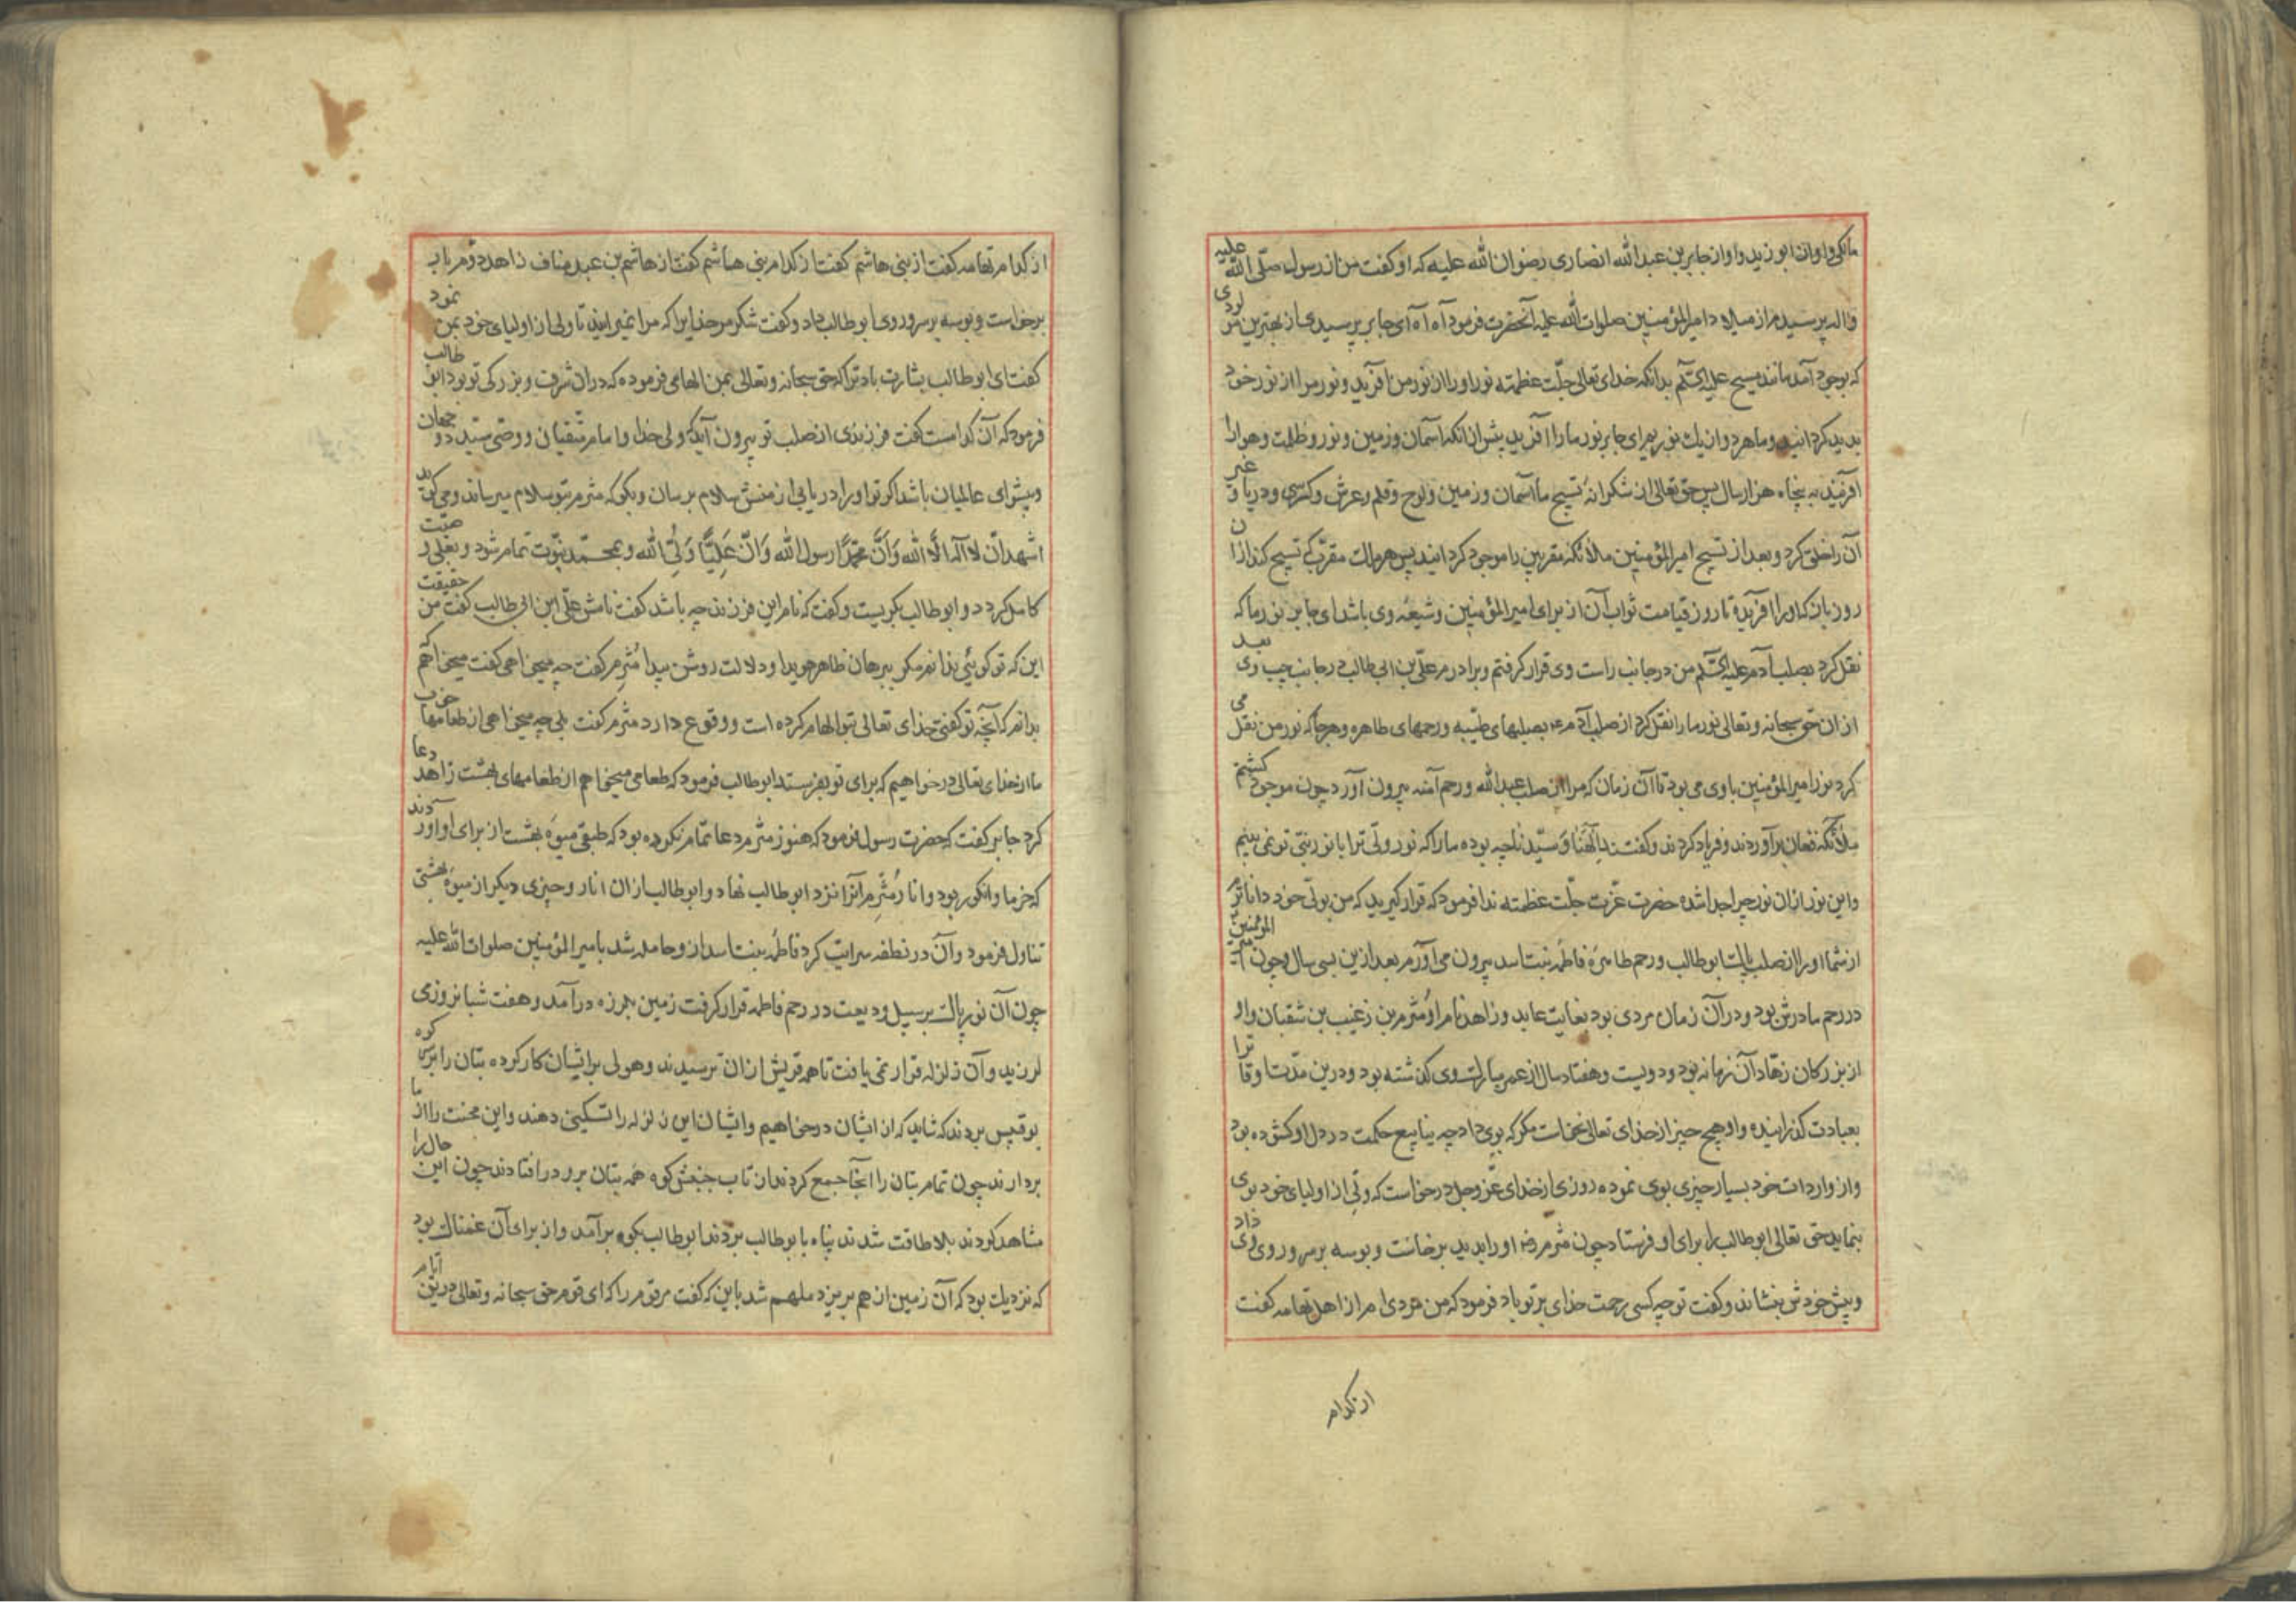 مالکی و او از ابو زید و او از جابر بن عبد الله انصاری رضوان الله علیه که او کفت من از رسول صلی الله علیه
واله پرسیدم از میلاد امیرالمؤمنین صلوات الله علیه آنحضرت فرمود آه آه ای جابر پرسیدی از بهترین مولودی
که بوجود آمد مانند مسیح علیه السّلم بدانکه خدای تعالی جلّت عظمته نور او را از نور من آفرید و نور مرا از نور خود
پدید کردانید و ما هر دو از یك نوریم ای جابر نور ما را آفرید پیش از انکه آسمان و زمین و نور و ظلمت و هوا را
آفریند به پنجاه هزار سال پس حق تعالی از شکرانهٔ تسبیح ما آسمان و زمین و لوح و قلم و عرش و کرسی و دریا و غیر
آن را خلق کرد و بعد از تسبیح امیر المؤمنین ملائکه مقربین را موجود کردانید پس هر ملك مقرّب که تسبیح کند از ان
روز باز که او را آفریده تا روز قیامت ثواب آن از برای امیر المؤمنین و شیعهٔ وی باشد ای جابر نور ما که
نقل کرد بصلب آدم علیه السّلم من در جانب راست وی قرار کرفتم و برادرم علی بن ابی طالب در جانب چپ وی بعد
از ان حق سبحانه و تعالی نور ما را نقل کرد از صلب آدم ء بصلبهای طیّبه و رحمهای طاهره و هرجا که نور من نقل می
کرد نور امیر المؤمنین باوی می بود تا آن زمان که مرا از صلب عبد الله و رحم آمنه بیرون آورد چون موجود کشتم
ملائکه فغان برآوردند و فریاد کردند و کفتند الهنا و سیّدنا چه بوده ما را که نور ولّی ترا با نور نبیّ تو نمی بینیم
و این نور از ان نور چرا جدا شده حضرت عزّت جلّت عظمته ندا فرمود که قرار کیرید که من بولّی خود داناترم
از شما او را از صلب پاك ابو طالب و رحم طاهرهٔ فاطمه بنت اسد بیرون می آورم بعد ازین بسی سال و چون امیر المؤمنین
در رحم مادرش بود و در آن زمان مردی بود بغایت عابد و زاهد نام او مثرم بن زغیب بن شقبان و او
از بزرکان زهّاد آن زمانه بود و دویست و هفتاد سال از عمر مبارك وی کذشته بود و درین مدّت او قا ترا
بعبادت کذرانیده و او هیچ چیز از خدای تعالی نخواست مکر که بوی داد چه ینابیع حکمت در دل او کشوده بود
و از واردات خود بسیار چیزی بوی نموده روزی از خدای عزّ و جل درخواست که ولّی از اولیای خود بوی
بنماید حق تعالی ابو طالب را برای او فرستاد چون مثرم او را بدید برخاست و بوسه بر سر و روی وی داد
و پیش خودش بنشاند و کفت تو چه کسی رحمت خدای بر تو باد فرمود که من مردی ام از اهل تهامه کفت
از کدام
از کدام تهامه کفت از بنی هاشم کفت از کدام بنی هاشم کفت از هاشم بن عبد مناف زاهد دوم بار
برخواست و بوسه بر سر و روی ابو طالب داد و کفت شکر مر خدایرا که مرا نمیرانید تا ولی از اولیای خود بمن نمود
کفت ای ابو طالب بشارت باد ترا که حق سبحانه و تعالی بمن الهامی فرموده که در ان شرف و بزرکی تو بود ابو طالب
فرمود که آن کدامست کفت فرزندی از صلب تو بیرون آید که ولی خدا و امام متّقیان و وصّی سیّد دو جهان
و پیشوای عالمیان باشد اکر تو او را دریابی از منش سلام برسان و بکو که مثرم بتو سلام میرساند و می کوید
اشهد انّ لا اله الا الله و انّ محمّدًا رسول الله و انّ علیًّا ولیّ الله و بمحمّد نبوّت تمام شود و بعلی وصیّت
کامل کردد و ابو طالب بکریست و کفت که نام این فرزند چه باشد کفت نامش علّی ابن ابی طالب کفت من حقیقت
این که تو کوئی ندانم مکر ببرهان ظاهر هویدا و دلالت روشن پیدا مثرم کفت چه میخواهی کفت میخواهم
بدانم که آنچه تو کفتی خدای تعالی بتو الهام کرده است و وقوع دارد مثرم کفت بلی چه میخواهی از طعامها خوب
ما از خدای تعالی درخواهیم که برای تو بفرستد ابو طالب فرمود که طعامی میخواهم از طعامهای بهشت زاهد دعا
کرد جابر کفت که حضرت رسول فرمود که هنوز مثرم دعا تمام نکرده بود که طبقی میوهٔ بهشت از برای او آوردند
که خرما و انکور بود و انار مثرم آنرا نزد ابو طالب نهاد و ابو طالب از ان انار و چیزی دیکر از میوهٔ بهشتی
تناول فرمود و آن در نطفه سرایت کرد فاطمه بنت اسد از و حامله شد بامیر المؤمنین صلوات الله علیه
چون آن نور پاك بر سبیل ودیعت در رحم فاطمه قرار کرفت زمین بلرزه درآمد و هفت شبانروزی
لرزید و آن زلزله قرار نمی یافت تا همه قریش از ان ترسیدند و هولی بر ایشان کار کرده بتان را بر سر کوه
بو قبیس بردند که شاید که از ایشان درخواهیم و ایشان این زلزله را تسکینی دهند و این محنت را از ما
بردارند چون تمام بتان را آنجا جمع کردند از تاب جنبش کوه همه بتان برو درافتادند چون این حال را
مشاهد کردند بلا طاقت شدند پناه با بو طالب بردند ابو طالب بکوه برآمد و از برای آن غمناك بود
که نزدیك بود که آن زمین از هم بریزد ملهم شد باین که کفت مر قوم را که ای قوم حق سبحانه و تعالی درین ایام